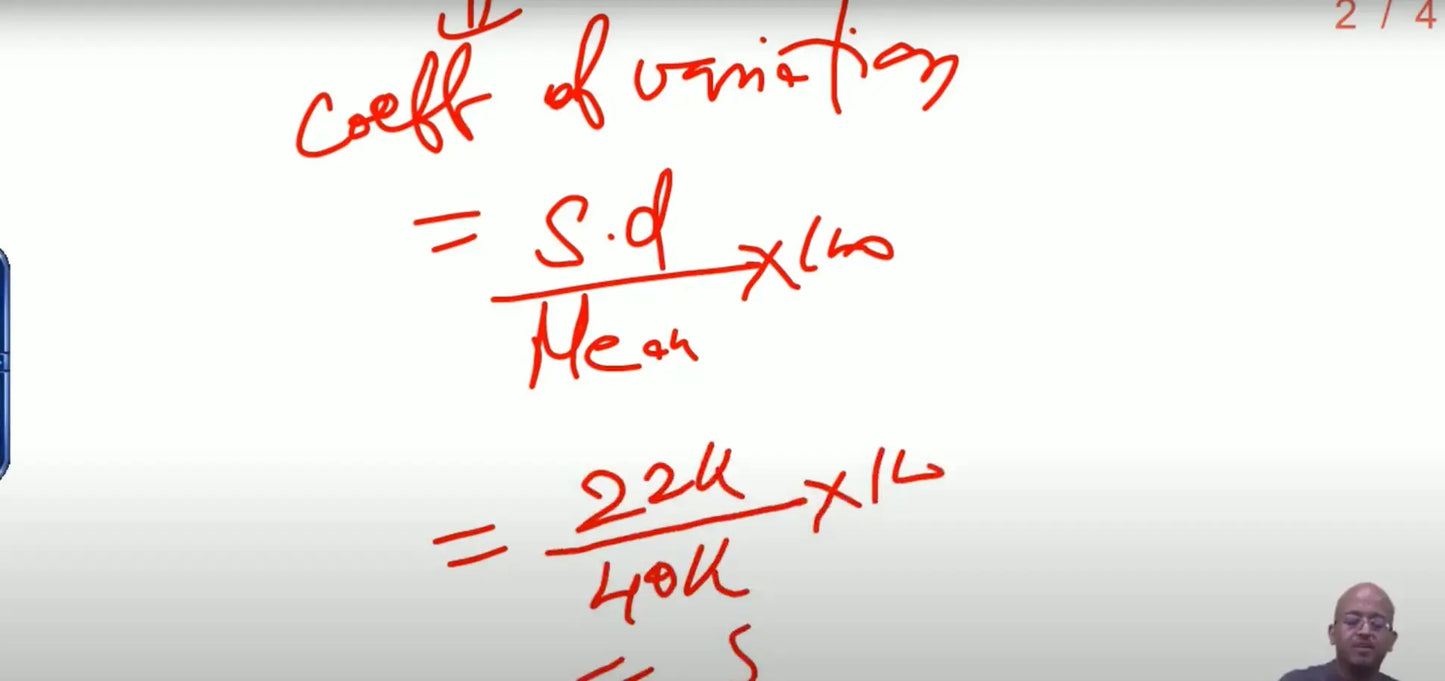 2 / 4
Coeff of variation
= S.d / Mean × 100
= 22K / 40K × 100
= 5